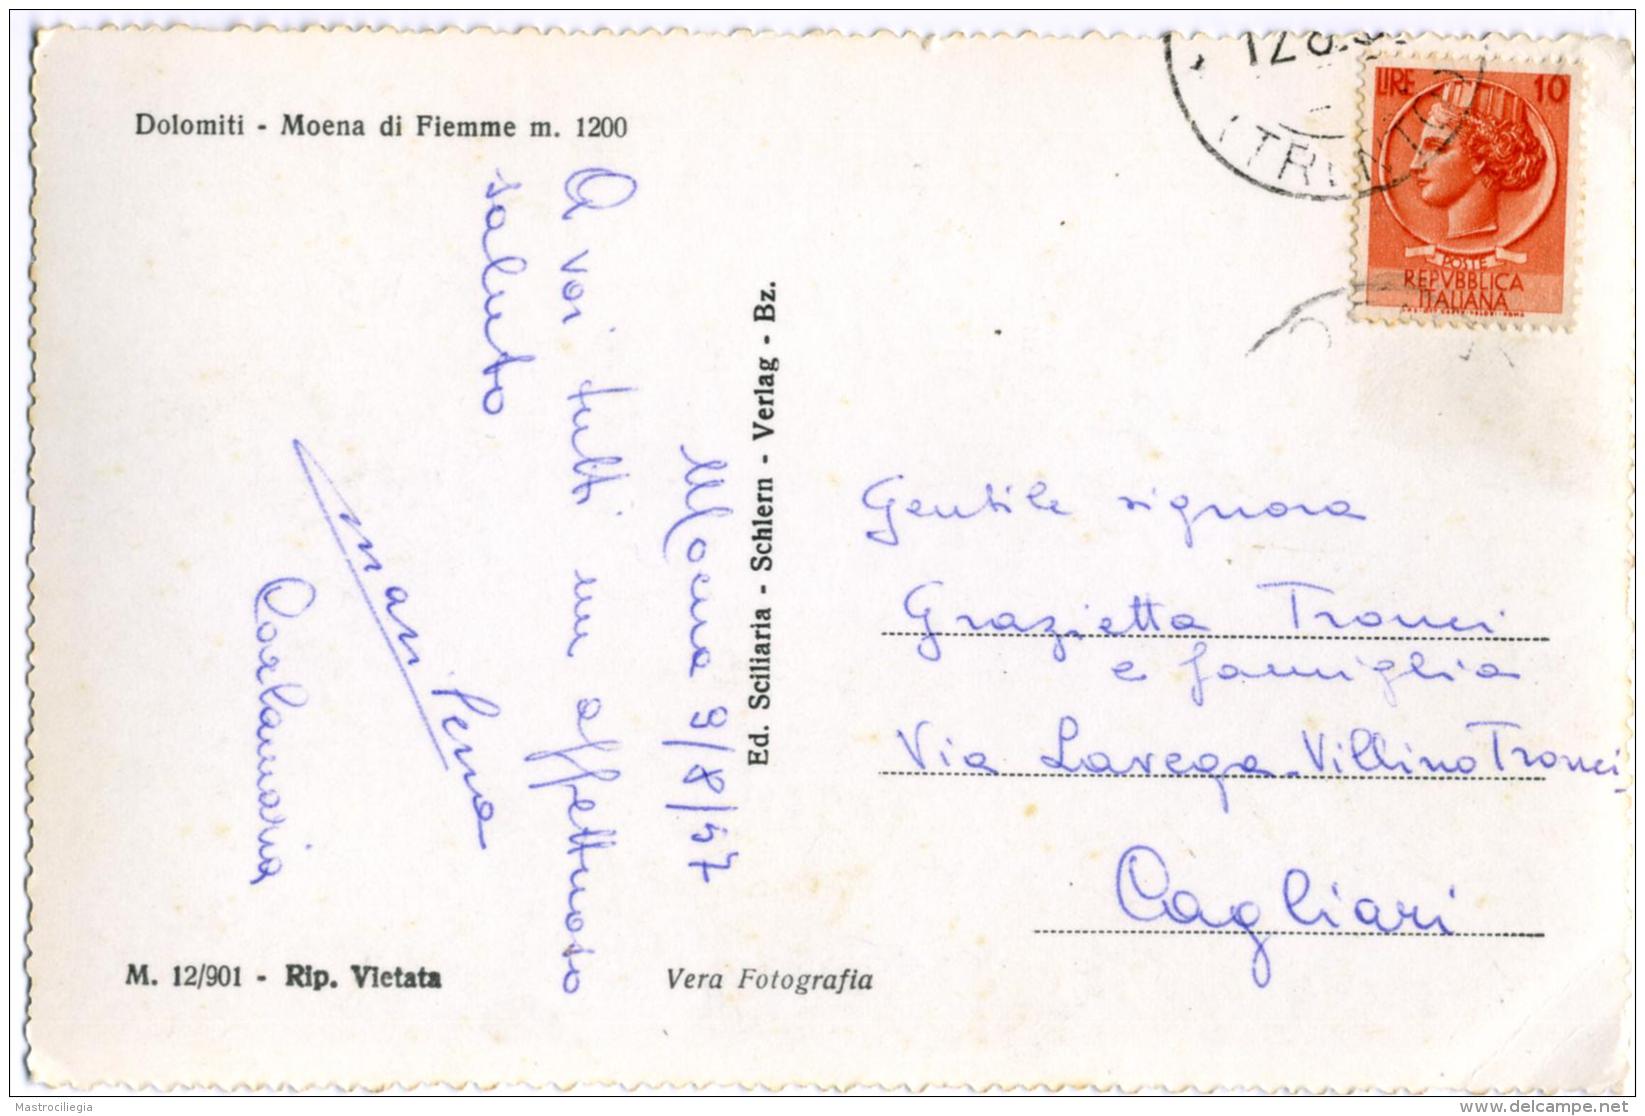 Dolomiti - Moena di Fiemme m. 1200
Moena 9/8/57
A voi tutti un affettuoso
saluto
Mari Pena
Carlamaria
M. 12/901 - Rip. Vietata
Vera Fotografia
Ed. Sciliaria - Schlern - Verlag - Bz.
(TRENTO)
LIRE 10
POSTE
REPVBBLICA
ITALIANA
Gentile signora
Grazietta Tronci
e famiglia
Via Lavega - Villino Tronci
Cagliari
Mastrociliegia
www.delcampe.net